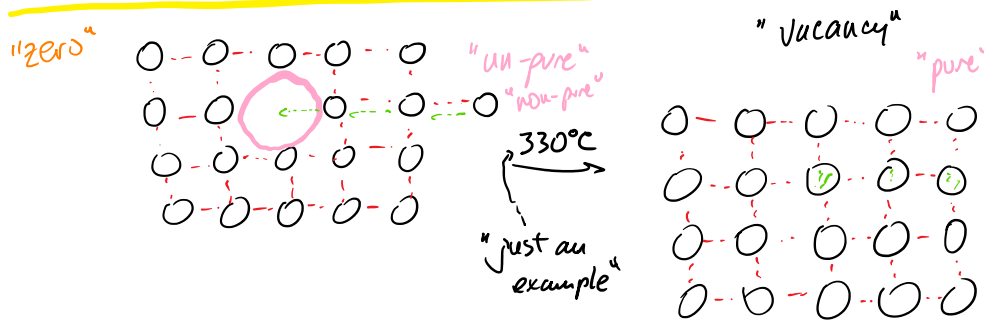 "zero"
"un-pure"
"non-pure"
330°C
"just an
example"
"vacancy"
"pure"